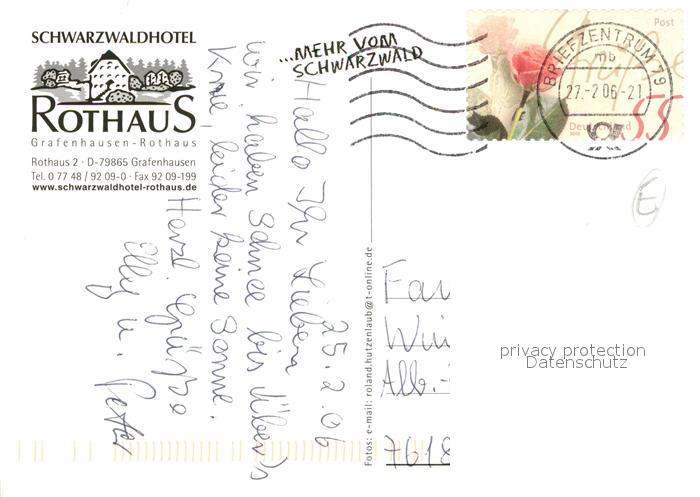 SCHWARZWALDHOTEL
ROTHAUS
Grafenhausen - Rothaus
Rothaus 2 · D-79865 Grafenhausen
Tel. 0 77 48 / 92 09-0 · Fax 92 09-199
www.schwarzwaldhotel-rothaus.de
...MEHR VOM
SCHWARZWALD
Post
Grüße
Deutschland
55
BRIEFZENTRUM 79
mb
27.-2.06-21
E
25.2.06
Hallo Ihr Lieben
Wir haben Schnee bis über's
Knie, leider keine Sonne.
Herzl. Grüße
Elly u. Peter
Fotos: e-mail: roland.hutzenlaub@t-online.de
Fam
Win
Alb.-
7618
privacy protection
Datenschutz